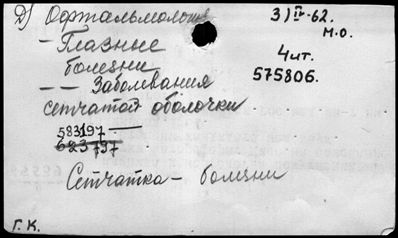 Д) Офтальмология
3) IV-62.
М.О.
- Глазные
болезни
4 чит.
575806.
- - Заболевания
сетчатой оболочки
583197 —
623797
Сетчатка - болезни
Г. К.